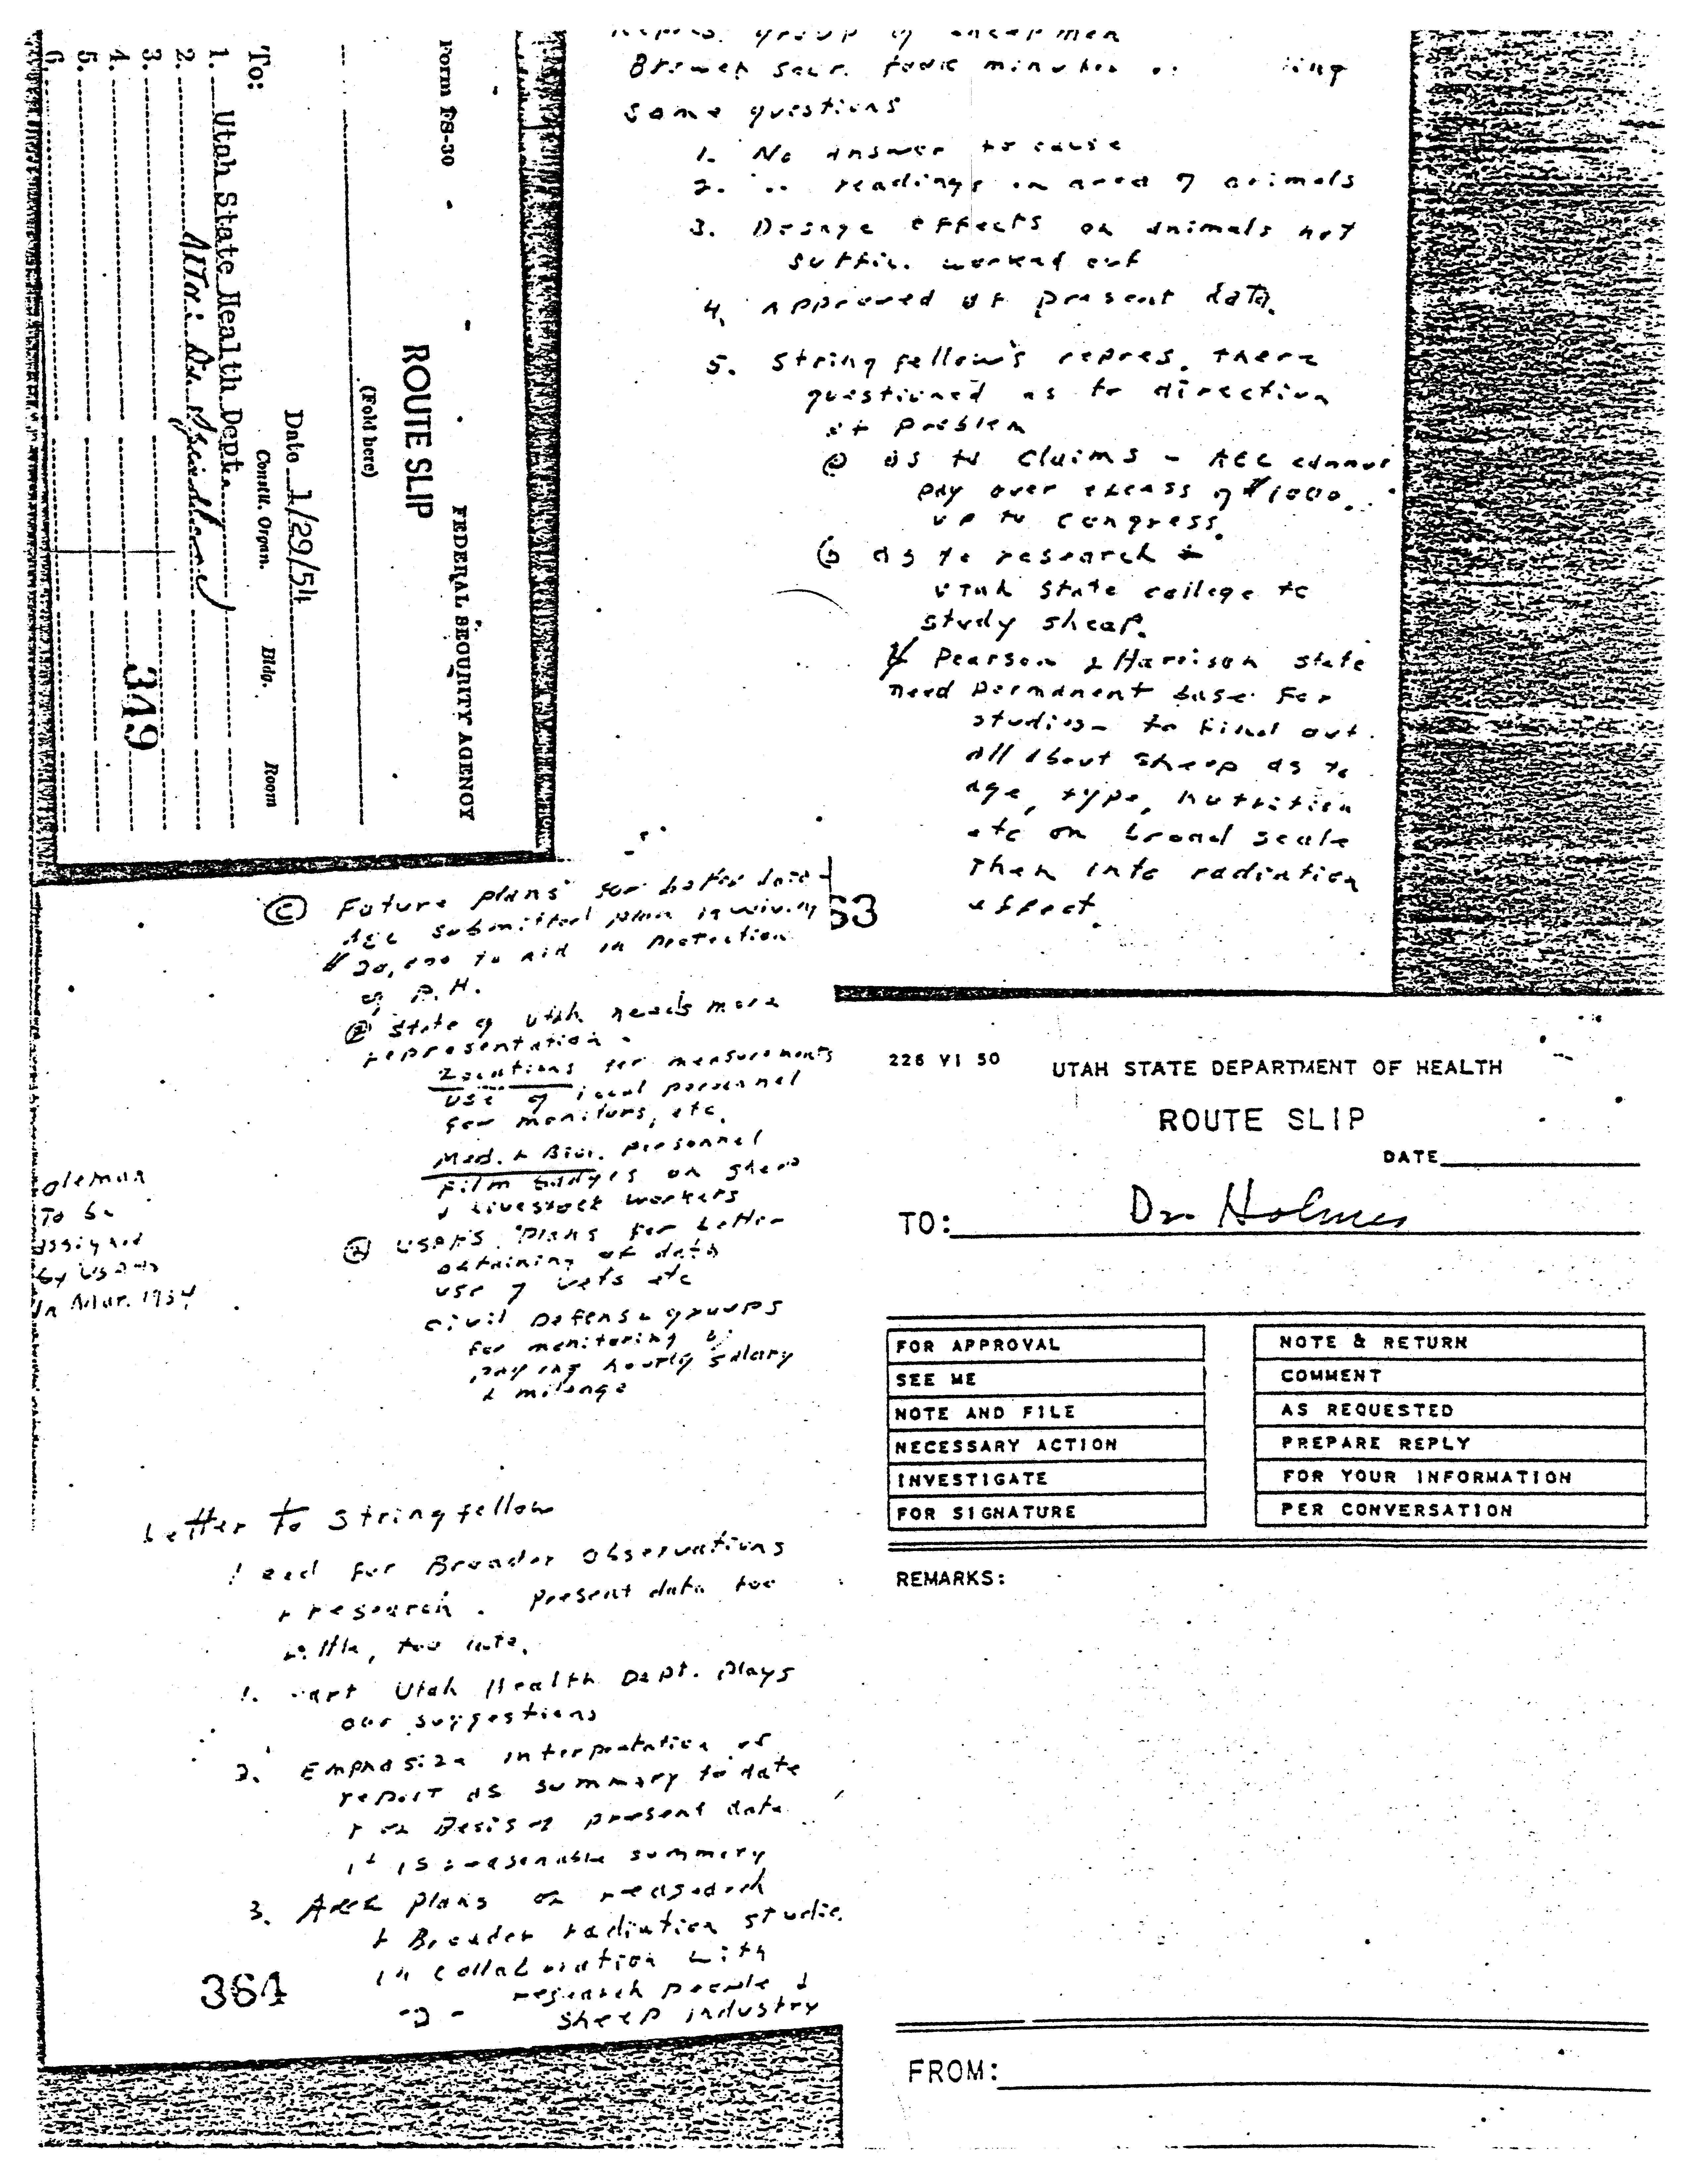 Form FS-30
FEDERAL SECURITY AGENCY
ROUTE SLIP
(Fold here)
Date 1/29/54
To:
Constit. Organ. Bldg. Room
1. Utah State Health Dept.
2. Attn: Dr.
3.
4.
5.
6.
349
group of
some questions
1. No answer to cause
2. " readings in area of animals
3. Dosage effects on animals not
suffic. worked out
4. Approved of present data.
5. Stringfellow's repres. there
questioned as to direction
of problem
ⓐ as to claims - AEC cannot
pay over excess of $1000.
up to congress.
ⓑ as to research
Utah State college to
study sheep.
Pearson & Harrison state
need permanent base for
studies - to find out
all about sheep as to
age, type, nutrition
etc on broad scale
Then into radiation
effect.
63
ⓒ Future plans for better data -
AEC submitted plan
$20,000 to aid in protection
of P.H.
② State of Utah needs more
representation.
Locations for measurements
use of local personnel
for monitors, etc.
Med. & Biol. personnel
Film badges on sheep
& livestock workers
plans for better
obtaining of data
use of vets etc
civil Defense groups
for monitoring by
paying hourly salary
& mileage
To be
assigned
by
In Mar. 1954
Letter to Stringfellow
for Broader Observations
& research. Present data too
little, too late.
1. part Utah Health Dept. plays
our suggestions
2. Emphasize interpretation of
report as summary to date
& on basis of present data
it is reasonable summary
3. plans on research
& Broader radiation studies
in collaboration with
research people &
sheep industry
-2-
364
226 VI 50 UTAH STATE DEPARTMENT OF HEALTH
ROUTE SLIP
DATE
TO: Dr. Holmes
FOR APPROVAL NOTE & RETURN
SEE ME COMMENT
NOTE AND FILE AS REQUESTED
NECESSARY ACTION PREPARE REPLY
INVESTIGATE FOR YOUR INFORMATION
FOR SIGNATURE PER CONVERSATION
REMARKS:
FROM: